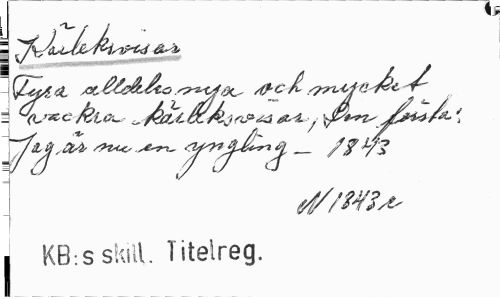 Kärleksvisor
Fyra alldeles nya och mycket
vackra kärleksvisor, Den första:
Jag är nu en yngling – 1843
N 1843 r
KB:s skill. Titelreg.